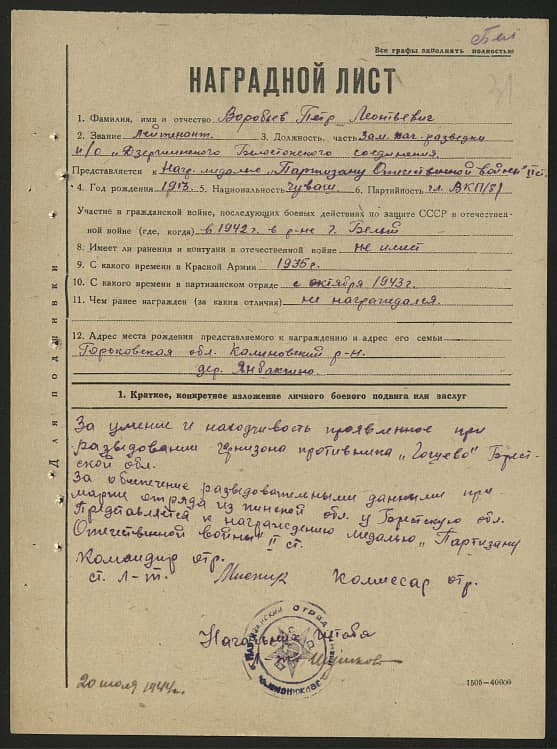 Бел
Все графы заполнять полностью
31
НАГРАДНОЙ ЛИСТ
1. Фамилия, имя и отчество Воробьев Петр Леонтьевич
2. Звание лейтенант. 3. Должность, часть Зам. нач. разведки
п/о „Дзержинского" Белостокского соединения.
Представляется к Нагр. медалью „Партизану Отечественной войны" II ст.
4. Год рождения 1913 5. Национальность чуваш 6. Партийность чл. ВКП/б/
Участие в гражданской войне, последующих боевых действиях по защите СССР в отечествен-
ной войне (где, когда) в 1942 г. в р-не г. Белый
8. Имеет ли ранения и контузии в отечественной войне не имеет
9. С какого времени в Красной Армии 1935 г.
10. С какого времени в партизанском отряде с октября 1943 г.
11. Чем ранее награжден (за какия отличия) не награждался.
12. Адрес места рождения представляемого к награждению и адрес его семьи
Горьковская обл. Калиновский р-н.
дер. Янбактино.
Для подшивки
1. Краткое, конкретное изложение личного боевого подвига или заслуг
За умение и находчивость проявленное при
разведовании гарнизона противника „Гоцево" Брест-
ской обл.
За обеспечение разведовательными данными при
марше отряда из пинской обл. у Брестскую обл.
Представляется к награждению медалью „Партизану
Отечественной войны" II ст.
Командир отр.
ст. л-т. Комиссар отр.
Начальник штаба
ПАРТИЗАНСКИЙ ОТРЯД
20 июля 1944 г.
1505—40000